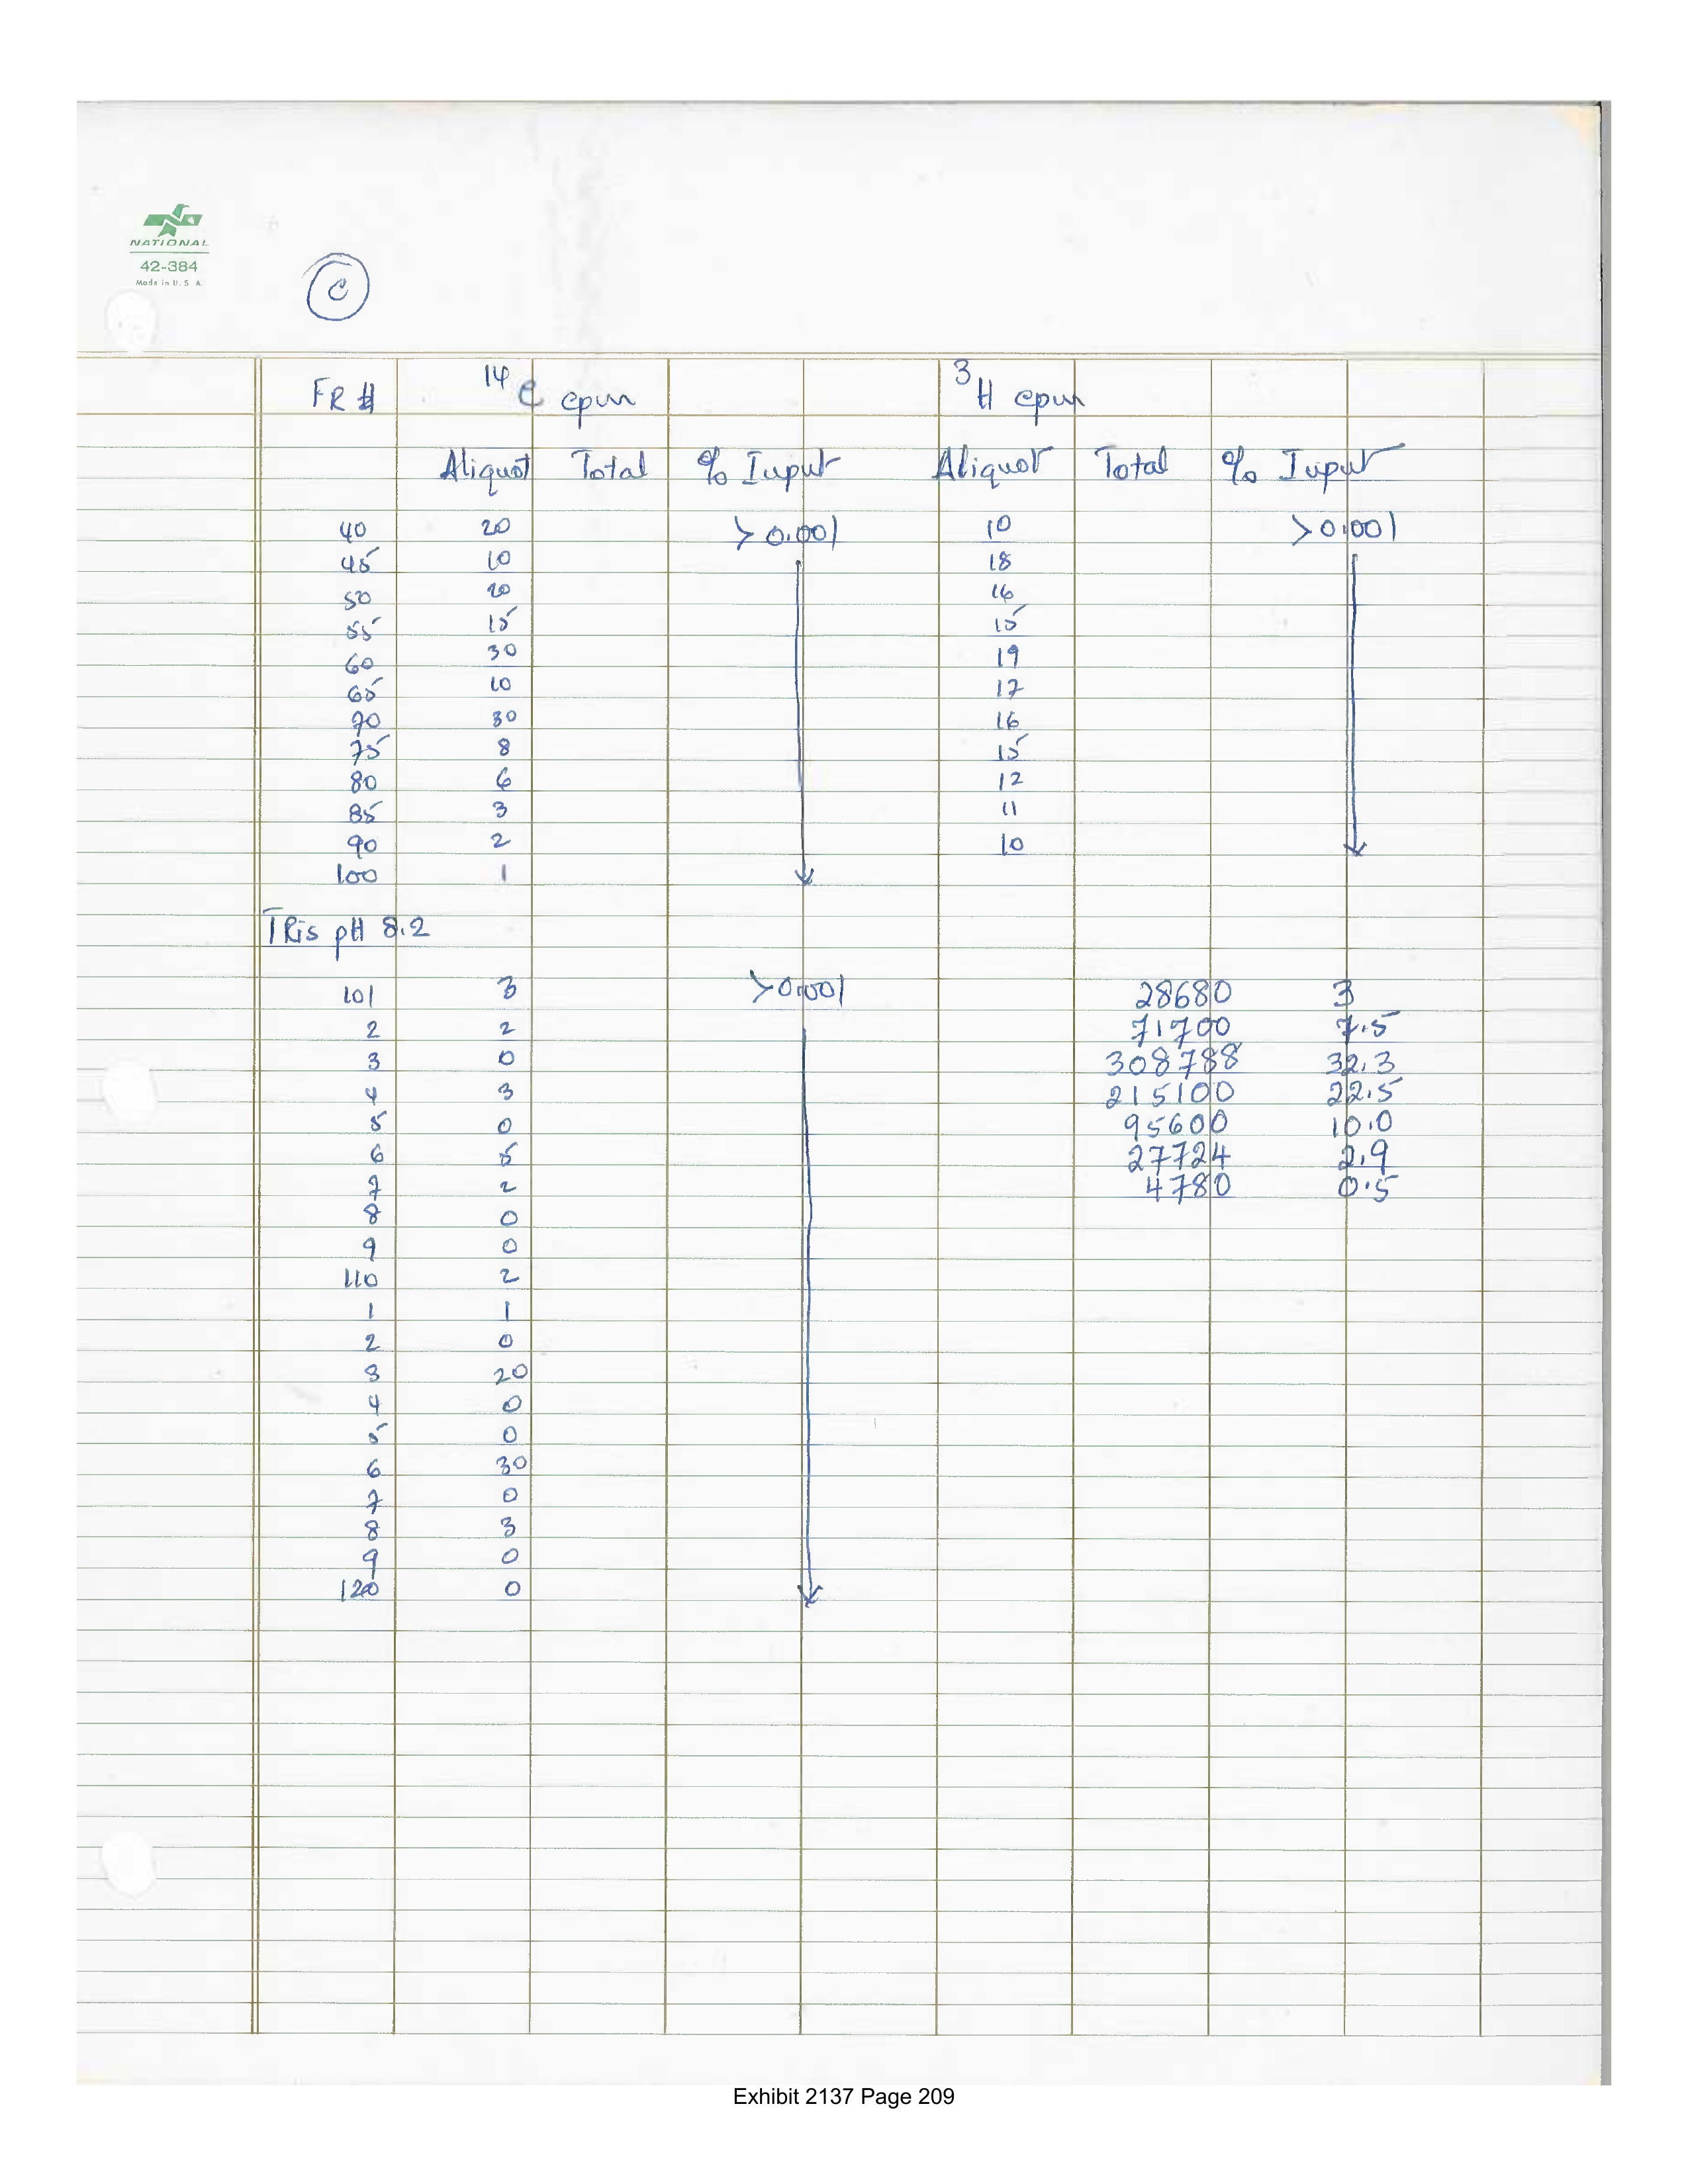 NATIONAL
42-384
Made in U. S. A.
C
FR # 14C cpm 3H cpm
Aliquot Total % Input Aliquot Total % Input
40 20 >0.001 10 >0.001
45 10 18
50 20 16
55 15 15
60 30 19
65 10 17
70 30 16
75 8 15
80 6 12
85 3 11
90 2 10
100 1
TRis pH 8.2
101 3 >0.001 28680 3
2 2 71700 7.5
3 0 308788 32.3
4 3 215100 22.5
5 0 95600 10.0
6 5 27724 2.9
7 2 4780 0.5
8 0
9 0
110 2
1 1
2 0
3 20
4 0
5 0
6 30
7 0
8 3
9 0
120 0
Exhibit 2137 Page 209